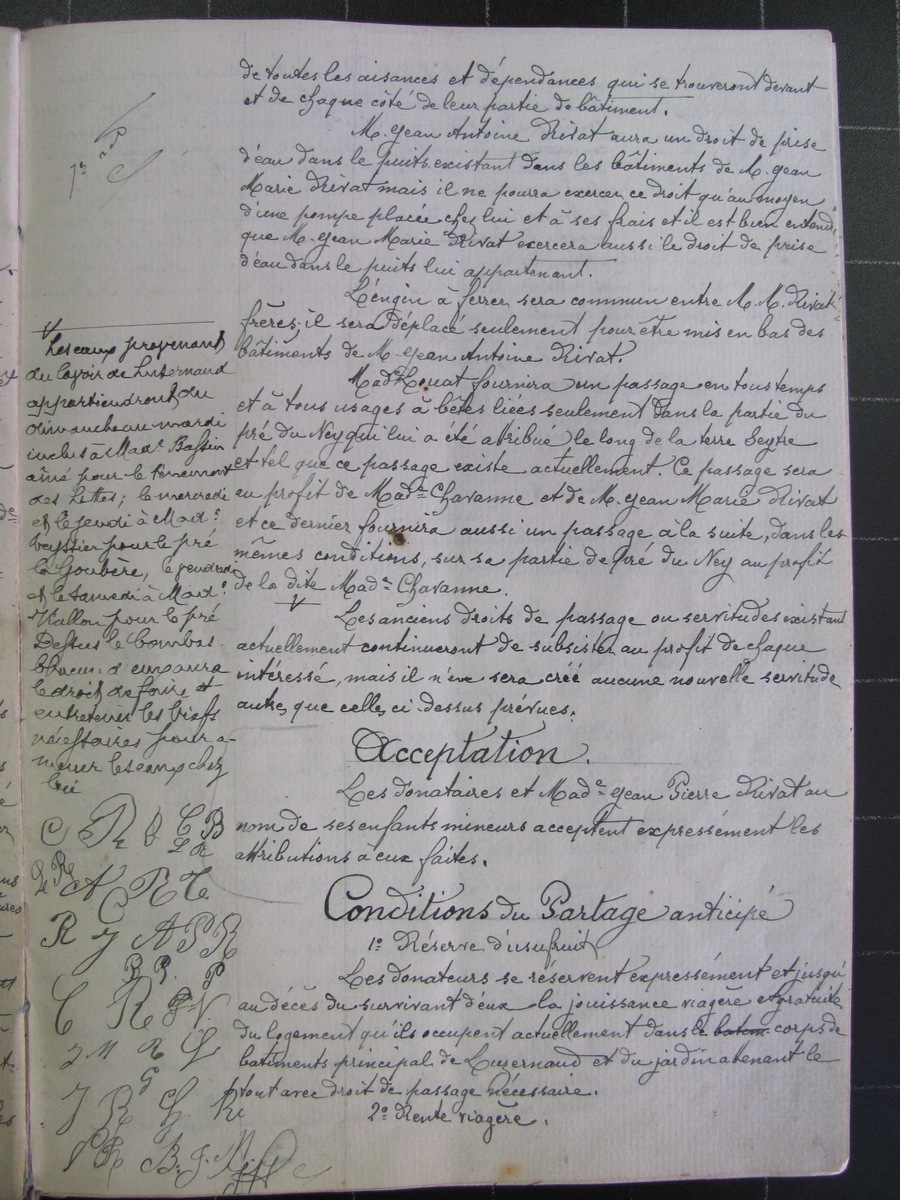 de toutes les aisances et dépendances qui se trouveront devant
et de chaque côté de leur partie de bâtiment.
M. Jean Antoine Rivat aura un droit de prise
d'eau dans le puits existant dans les bâtiments de M. Jean
Marie Rivat mais il ne pourra exercer ce droit qu'au moyen
d'une pompe placée chez lui et à ses frais et il est bien entendu
que M. Jean Marie Rivat exercera aussi le droit de prise
d'eau dans le puits lui appartenant.
L'engin à ferrer sera commun entre M.M. Rivat
frères; il sera déplacé seulement pour être mis en bas des
bâtiments de M. Jean Antoine Rivat.
Made Louat fournira un passage en tous temps
et à tous usages à bêtes liées seulement dans la partie du
pré du Ney qui lui a été attribué le long de la terre Seytre
et tel que ce passage existe actuellement. Ce passage sera
au profit de Made Chavanne et de M. Jean Marie Rivat
et ce dernier fournira aussi un passage à la suite, dans les
mêmes conditions, sur sa partie de Pré du Ney au profit
de la dite Made Chavanne.
Les anciens droits de passage ou servitudes existant
actuellement continueront de subsister au profit de chaque
intéressé, mais il n'en sera créé aucune nouvelle servitude
autre, que celles ci dessus prévues.
Acceptation.
Les donataires et Made Jean Pierre Rivat au
nom de ses enfants mineurs acceptent expressément les
attributions à eux faites.
Conditions du Partage anticipé
1º Réserve d'usufruit
Les donateurs se réservent expressément et jusqu'
au décès du survivant d'eux la jouissance viagère et gratuite
du logement qu'ils occupent actuellement dans le batim corps de
bâtiments principal de Luzernaud et du jardin attenant le
tout avec droit de passage nécessaire.
2º Rente viagère.
Les eaux provenant
du lavoir de Luzernaud
appartiendront du
dimanche au mardi
inclus à Made Bassin
aîné pour le tènement
des Littes; le mercredi
et le jeudi à Made
Veyssier pour le pré
la Goubère, le vendredi
et le samedi à Made
Vallon pour le pré
Dessus le Combas.
Chacun d'eux aura
le droit de faire et
entretenir les biefs
nécessaires pour a-
mener les eaux chez
lui